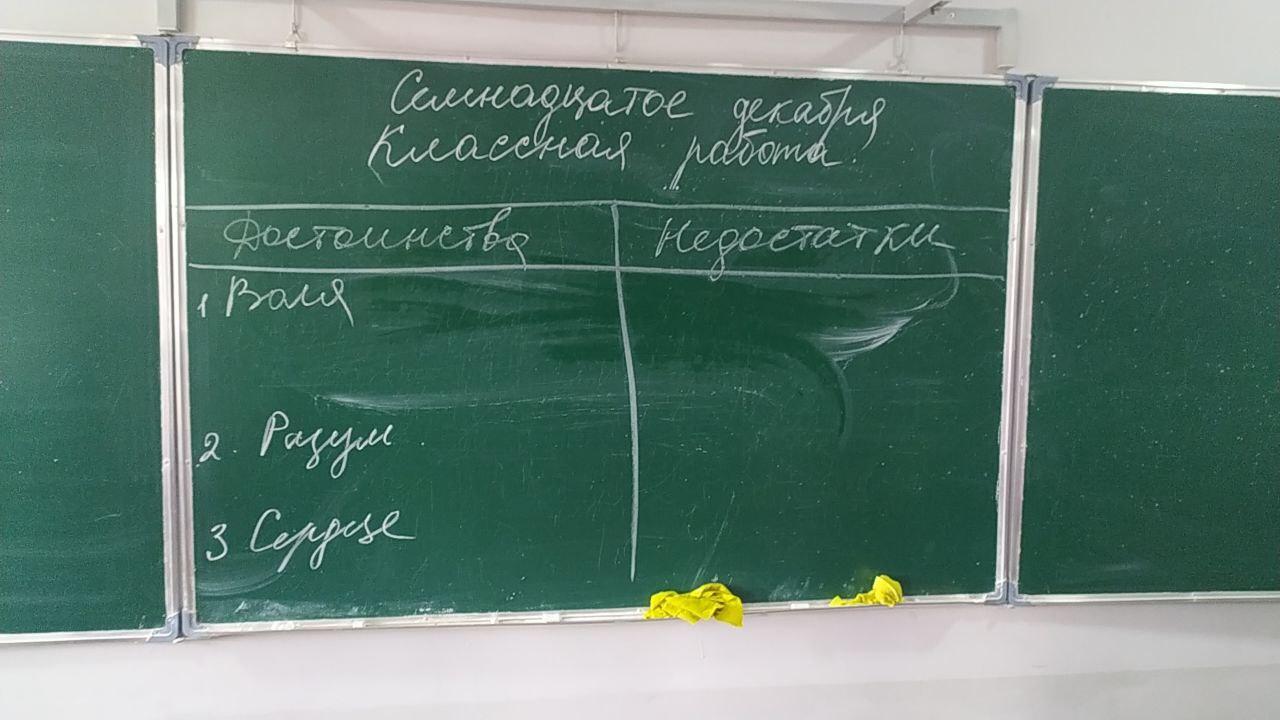 Семнадцатое декабря
Классная работа.
Достоинства Недостатки
1 Воля
2. Разум
3 Сердце